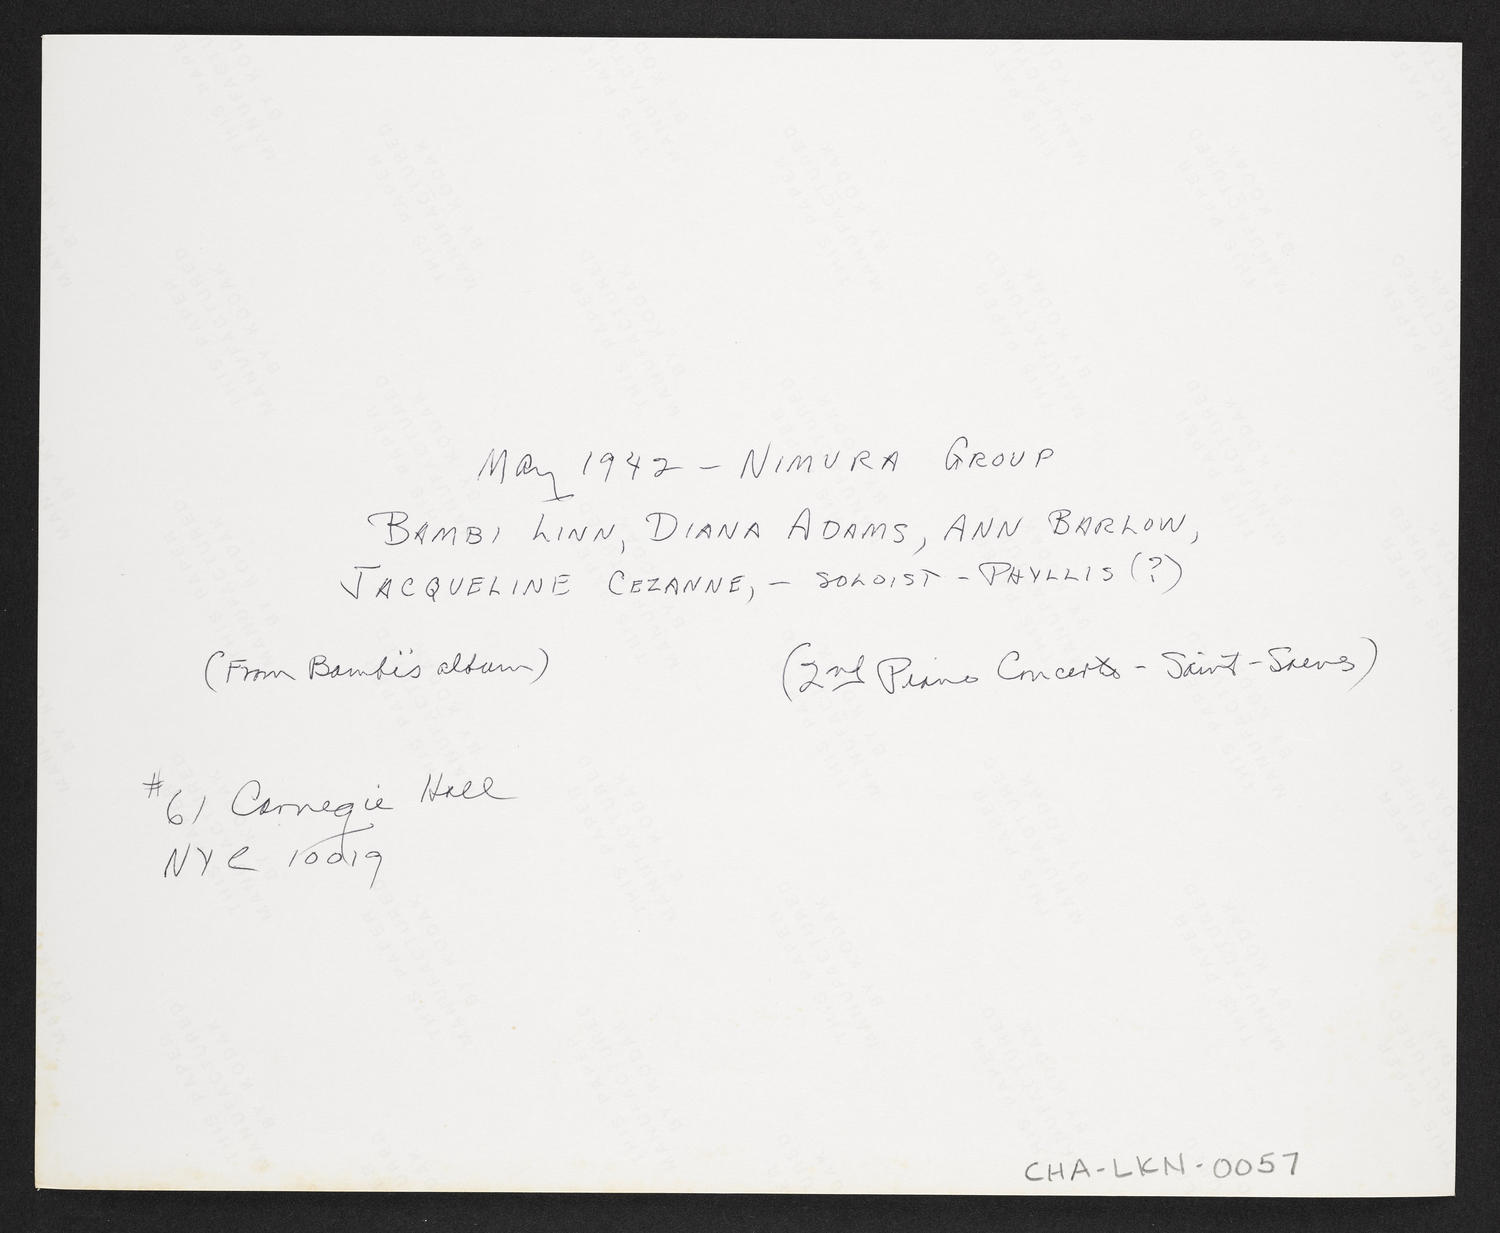 May 1942 - NIMURA GROUP
BAMBI LINN, DIANA ADAMS, ANN BARLOW,
JACQUELINE CEZANNE, - SOLOIST - PHYLLIS (?)
(From Bambi's album)
(2nd Piano Concerto - Saint-Saens)
#61 Carnegie Hall
NYC 10019
CHA-LKN-0057
THIS PAPER
MANUFACTURED
BY KODAK